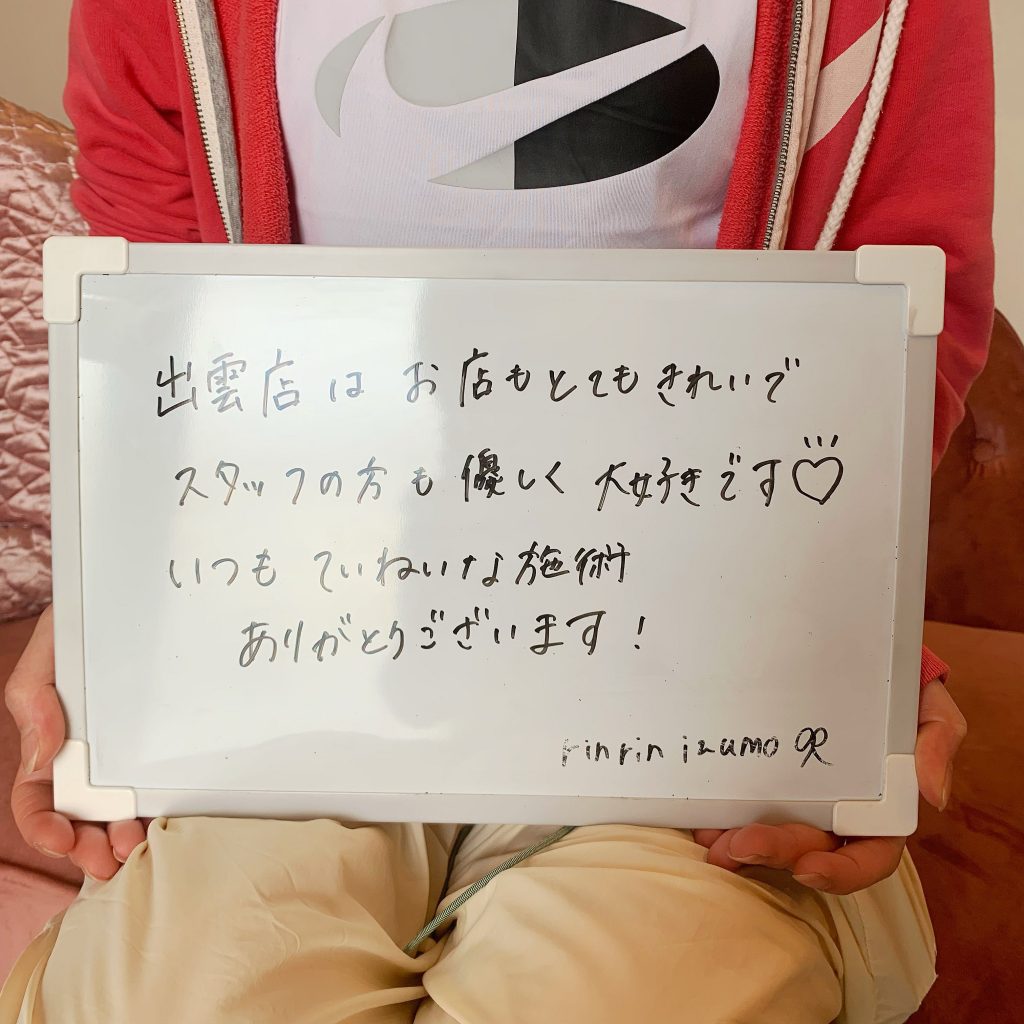 出雲店は お店もとてもきれいで
スタッフの方も 優しく 大好きです♡
いつも ていねいな施術
ありがとうございます！
rinrin izumo